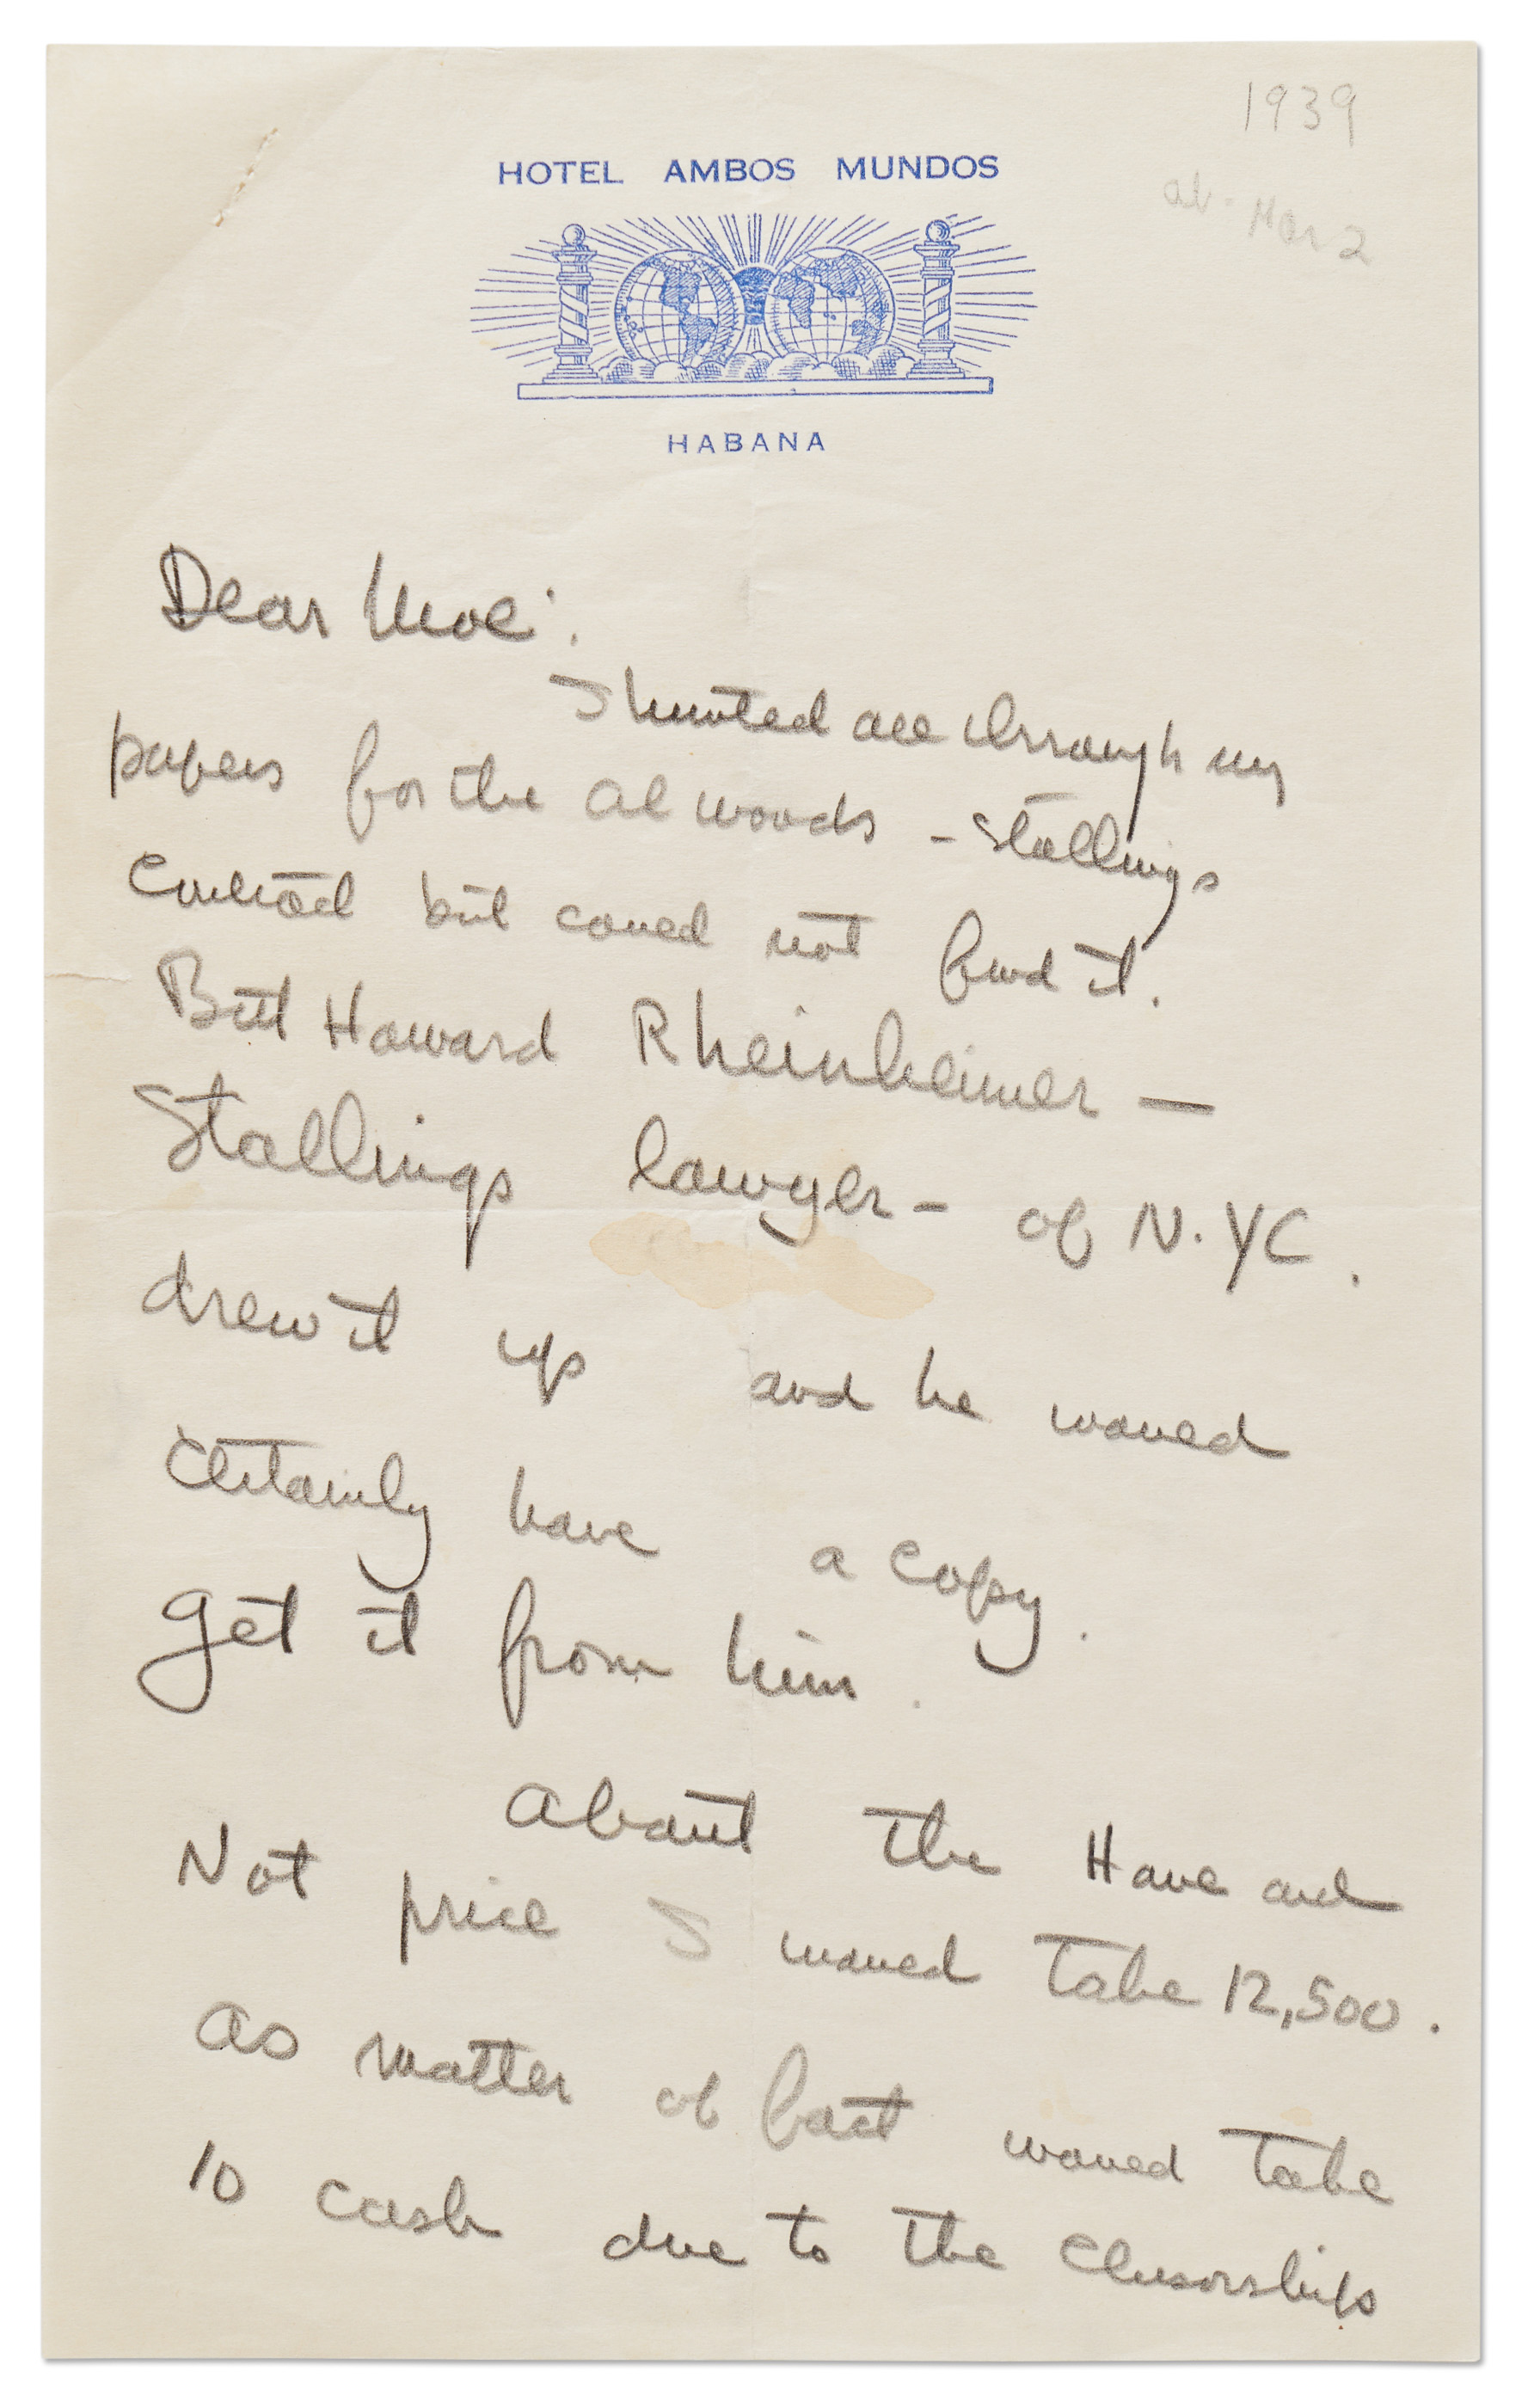 1939
ab. Mar 2
HOTEL AMBOS MUNDOS
HABANA
Dear Moe:
I hunted all through my
papers for the Al Woods - Stallings
contract but could not find it.
But Howard Rheinheimer —
Stallings lawyer - of N.YC.
drew it up and he would
certainly have a copy.
Get it from him.
About the Have and
Not price I would take 12,500.
As matter of fact would take
10 cash due to the censorship